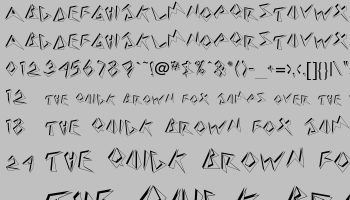 ABCDEFGHIJKLMNOPQRSTUVWX
ABCDEFGHIJKLMNOPQRSTUVWX
0123456789
12 THE QUICK BROWN FOX JUMPS OVER THE
18 THE QUICK BROWN FOX JUM
24 THE QUICK BROWN FO
THE QUICK BR